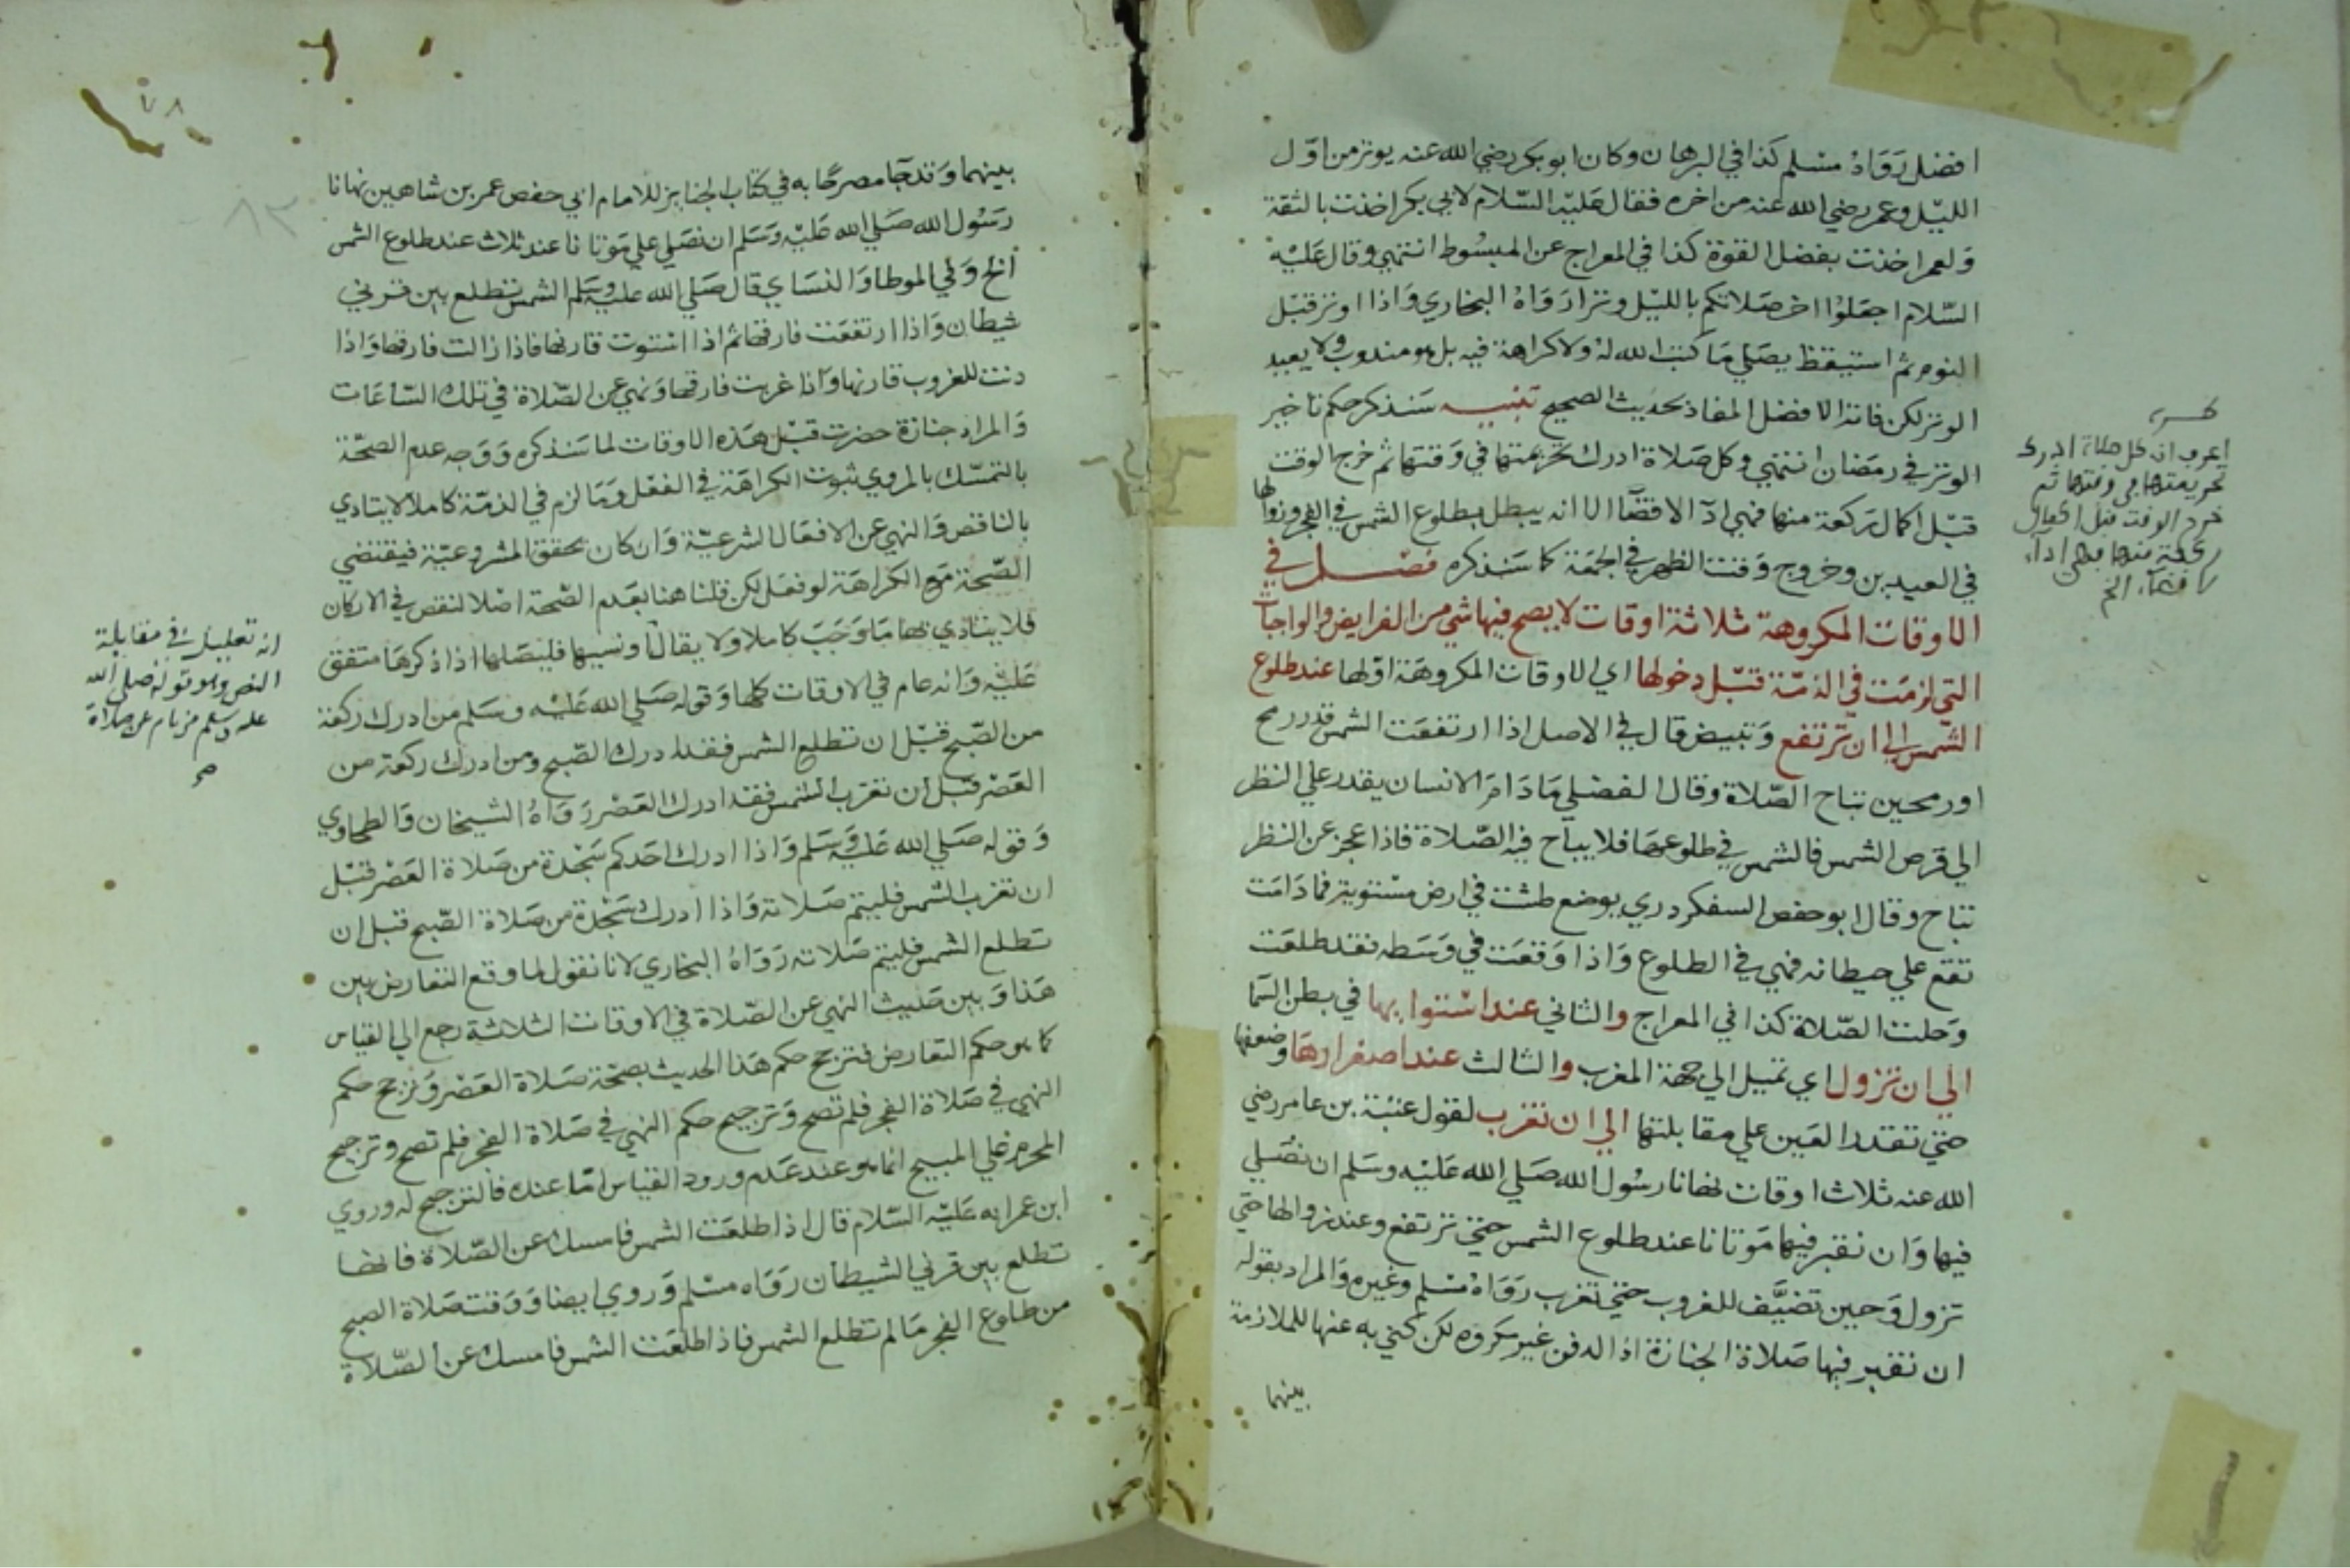 افضل رَوَاهُ مسْلم كذا في البرهان وكان ابو بكر رضي الله عنه يوتر من اوّل
الليْل وعمر رضي الله عنه من اخره فقال عَليْه السّلام لابي بكر اخذت بالثقة
وَلعمر اخذت بفضل القوة كذا في المعراج عن المبسُوط انتهي وقال عَليْه
السّلام اجعَلوُا اخر صَلاتكم بالليْل وترا رَوَاهُ البخاري وَاذا اوتر قبْل
النوم ثم استيقظ يصَلي مَا كتب الله لهُ ولا كراهة فيه بل هو مندوب ولا يعيد
الوتر لكن فاته الافضل المفاد بحديث الصحيح تنبيه سَنذكر حكم تاخير
الوتر في رمضان انتهي وكل صَلاة ادرك تحريمتها في وَقتها ثم خرج الوقت
قبْل اكمال رَكعة منها فهي ادآ لا قضَآ الا انه يبطل بطلوع الشمس في الفجر وزوالها
في العيدين وخروج وَقت الظهر في الجمعَة كما سَنذكره فصْل في
الاوقات المكروهة ثلاثة اوقات لا يصح فيها شي من الفرايض والواجبات
التي لزمَت في الذمّة قبْل دخولها اي الاوقات المكروهَة اوّلها عند طلوع
الشّمس الي ان ترتفع وَتبيض قال في الاصل اذا ارتفعَت الشمس قدر رمح
او رمحين تباح الصّلاة وقال الفضلي مَا دَامَ الانسان يقدر علي النظر
الي قرص الشمس فالشمس في طلوعهَا فلا يباح فيه الصّلاة فاذا عجز عن النظر
تباح وقال ابو حفص السفكردري يوضع طشت في ارض مسْتوية فما دَامَت
تقع علي حيطانه فهي في الطلوع وَاذا وَقعَت في وَسَطه فقد طلعَت
وَحلت الصّلاة كذا في المعراج والثاني عند اسْتوايها في بطن السّما
الي ان تزول اي تميل الي جهة المغرب والثالث عند اصفرارهَا وضعفها
حتي تقدر العَين علي مقابلتها الي ان تغرب لقول عتبَة بن عامر رضي
الله عنه ثلاث اوقات نهانا رسُول الله صَلي الله عَليْه وسَلم ان نصَلي
فيها وَان نقبر فيها مَوتانا عند طلوع الشمس حتي ترتفع وعند زوالها حتي
تزول وَحين تضيَّف للغروب حتي تغرب رَوَاهُ مسْلم وغيره وَالمراد بقوله
ان نقبر فيها صَلاة الجنازة اذ الدفن غير مكروه لكن كني به عنها للملازمة
بينهما
اعرف ان كل صلاة ادرك
تحريمتها في وقتها ثم
خرج الوقت قبل اكمال
ركعة منها فهي اداء
لا قضآء الخ
٧٨
٨٣
بينهما وَقد جَآ مصرحًا به في كتاب الجنايز للامام ابي حفص عمر بن شاهين نهانا
رَسُول الله صَلي الله عَليْه وَسَلم ان نصَلي علي مَوتانا عند ثلاث عند طلوع الشمس
الخ وَفي الموطا وَالنسَاي قال صَلي الله عليْه وسَلم الشمس تطلع بين قرني
شيطان وَاذا ارتفعَت فارقها ثم اذا اسْتوت قارنها فاذا زالت فارقها وَاذا
دنت للغروب قارنها وَاذا غربت فارقها وَنهي عن الصّلاة في تلك السّاعَات
وَالمراد جنازة حضرت قبْل هَذه الاوقات لما سَنذكره وَوَجه عدم الصحّة
بالتمسّك بالمروي ثبوت الكراهَة في الفعْل وَمَا لزم في الذمّة كاملا لا يتادي
بالناقص وَالنهي عن الافعَال الشرعيّة وَان كان يحقق المشروعيّة فيقتضي
الصّحة مَع الكراهَة لو فعَل لكن قلنا هنا بعَدم الصّحة اصْلا لنقص في الاركان
فلا يتادي بها مَا وَجَبَ كاملا ولا يقال او نسيها فليصَلها اذا ذكرهَا متفق
عَليْه وَانه عام في الاوقات كلها وَقوله صَلي الله عَليْه وسَلم من ادرك ركعة
من الصّبح قبْل ان تطلع الشمس فقد ادرك الصّبح ومن ادرك ركعة من
العَصْر قبْل ان تغرب الشمس فقد ادرك العَصْر رَوَاهُ الشيخان وَالطحاوي
وَقوله صَلي الله عَليْه وَسَلم وَاذا ادرك احَدكم سَجْدة من صَلاة العَصْر قبْل
ان تغرب الشمس فليتم صَلاته وَاذا ادرك سَجْدة من صَلاة الصّبح قبل ان
تطلع الشمس فليتم صَلاته رَوَاهُ البخاري لانا نقول لما وقع التعارض بين
هَذا وَبين حَديث النهي عن الصّلاة في الاوقات الثلاثة رجع الي القياس
كما هو حكم التعارض فترجح حكم هَذا الحديث بصحّة صَلاة العَصْر وَترجح حكم
النهي في صَلاة الفجر فلم تصح وَترجيح حكم النهي في صَلاة الفجر فلم تصح وترجيح
المحرم علي المبيح انما هو عند عَدم ورود القياس امّا عنده فالترجيح له وروي
ابن عمر انه عَليْه السّلام قال اذا طلعَت الشمس فامسك عن الصّلاة فانها
تطلع بين قرني الشيطان رَوَاه مسْلم وَروي ايضا وَوَقت صَلاة الصبح
من طلوع الفجر مَا لم تطلع الشمس فاذا طلعَت الشمس فامسك عن الصّلاة
انه تعليل في مقابلة
النص وهو قوله صلي الله
عليه وسلم من نام عن صلاة
صح